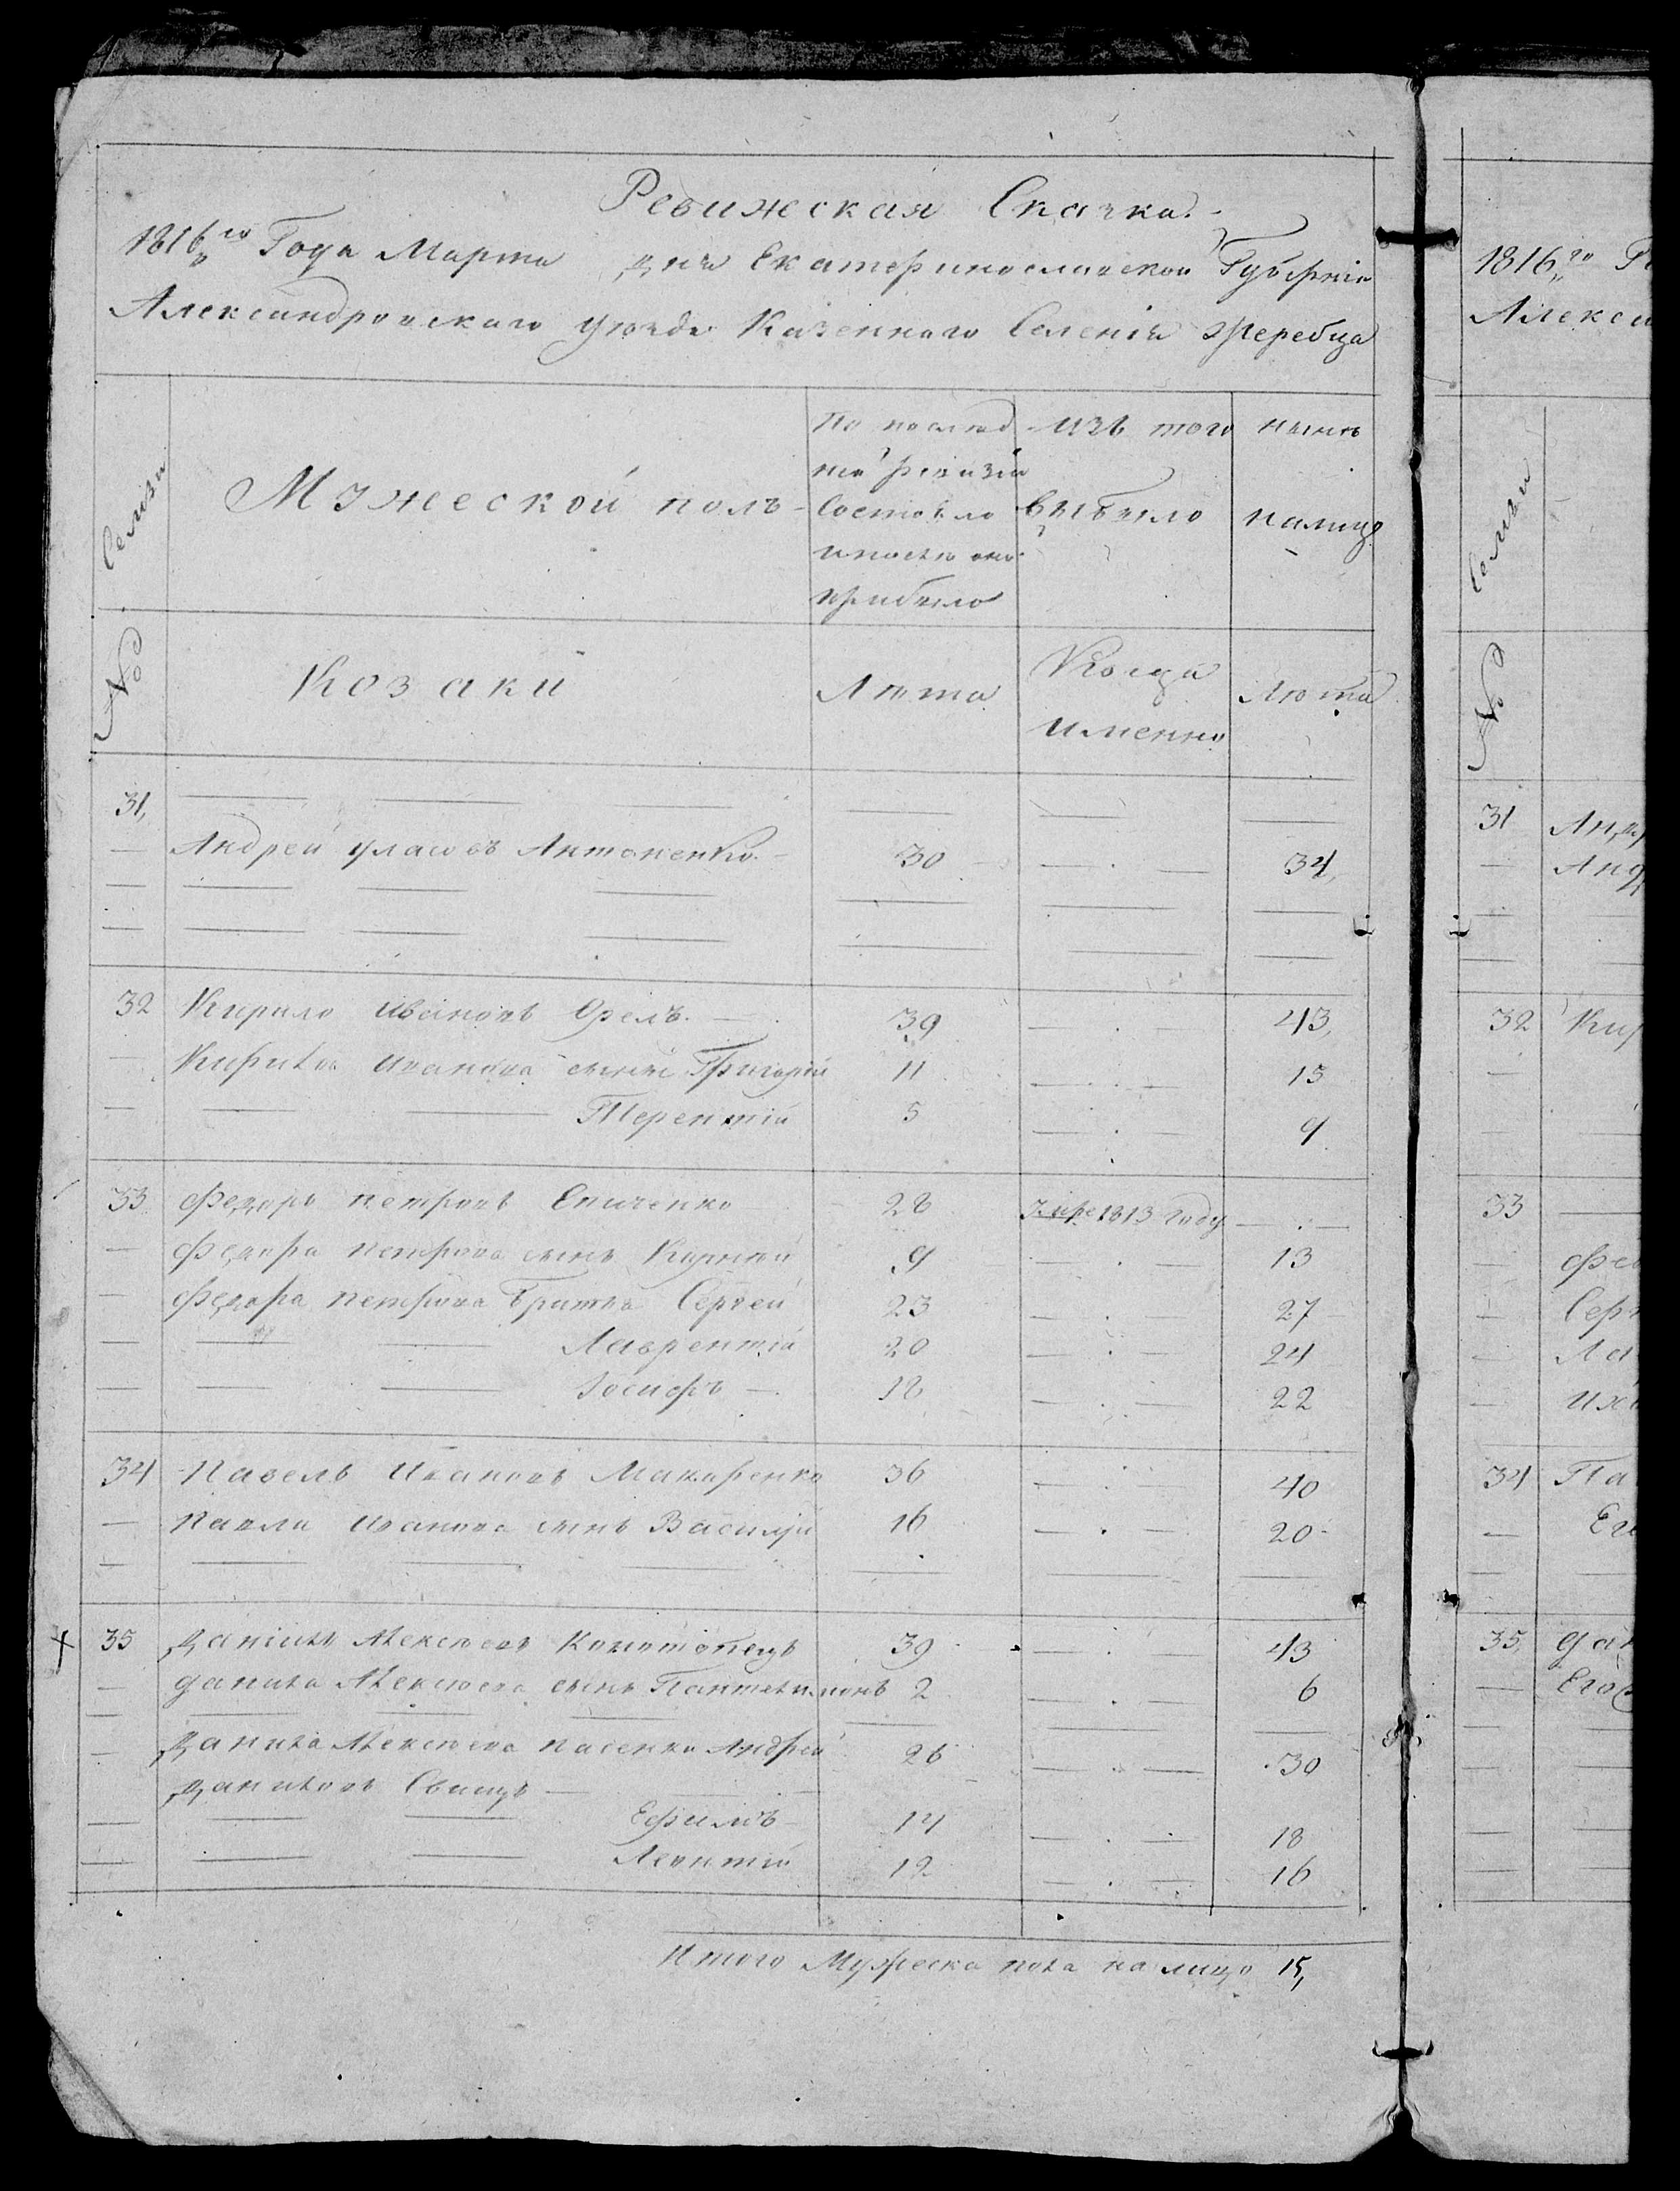 Ревижеская Скаска.
1816го Года Марта дня Екатеринославской Губерніи
Александровскаго уезда Казенного Селенія Жеребца
Семьи
Мужеской полъ
По послед
ней ревизіи
Состояло
и после оно
прибыло
изъ того
выбыло
ныне
налицо
№
Козаки
Лета
Когда
именно
Лета
31
Андрей уласовъ Антоненко 30 34
32 Кирило Ивановъ Орелъ 39 43
Кирила Иванова сыны Григорій 11 15
Терентій 5 9
33 Федоръ петровъ 28 1813 году
Федора петрова сынъ Корней 9 13
Федора петрова братья Сергей 23 27
Лаврентій 20 24
Іосифъ 18 22
34 Павелъ Ивановъ Макаренко 36 40
Павла Иванова сынъ Василій 16 20
35 Данило Алексеевъ Конотопецъ 39 43
Данила Алексеева сынъ Пантелимонъ 2 6
Данила Алексеева пасенки Андрей 26 30
Даниловъ
Ефимъ 14 18
Леонтій 12 16
Итого Мужеска пола на лицо 15
1816го
Алекса
Семьи
№
31
32 Кир
33
34 Па
35 Дан